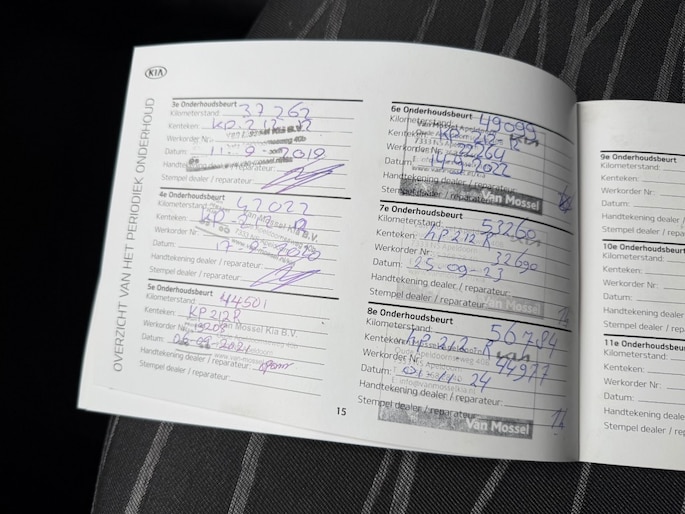 KIA
OVERZICHT VAN HET PERIODIEK ONDERHOUD
3e Onderhoudsbeurt
Kilometerstand: 37262
Kenteken: KP 212 R
Werkorder Nr.:
Datum: 11-9-2019
Handtekening dealer / reparateur:
Stempel dealer / reparateur:
4e Onderhoudsbeurt
Kilometerstand: 42022
Kenteken: KP 212 R
Werkorder Nr.:
Datum: 17-9-2020
Handtekening dealer / reparateur:
Stempel dealer / reparateur:
5e Onderhoudsbeurt
Kilometerstand: 44501
Kenteken: KP 212 R
Van Mossel Kia B.V.
Werkorder Nr.: 19208
Datum: 06-09-2021
Handtekening dealer / reparateur:
Stempel dealer / reparateur:
15
6e Onderhoudsbeurt
Kilometerstand: 49099
Kenteken: KP-212-R
Werkorder Nr.:
Datum: 14-9-2022
Handtekening dealer / reparateur:
Stempel dealer / reparateur:
Van Mossel
7e Onderhoudsbeurt
Kilometerstand: 53260
Kenteken: KP212R
Werkorder Nr.: 32690
Datum: 25-09-23
Handtekening dealer / reparateur:
Stempel dealer / reparateur:
Van Mossel
8e Onderhoudsbeurt
Kilometerstand: 56784
Kenteken: KP-212-R
Werkorder Nr.: 44977
Datum: 01-11-24
Handtekening dealer / reparateur:
Stempel dealer / reparateur:
Van Mossel
9e Onderhoudsbeurt
Kilometerstand:
Kenteken:
Werkorder Nr.:
Datum:
Handtekening dealer /
Stempel dealer / rep
10e Onderhoudsbeurt
Kilometerstand:
Kenteken:
Werkorder Nr.:
Datum:
Handtekening dealer /
Stempel dealer / rep
11e Onderhoudsbeur
Kilometerstand:
Kenteken:
Werkorder Nr:
Datum:
Handtekening dealer
Stempel dealer / rep